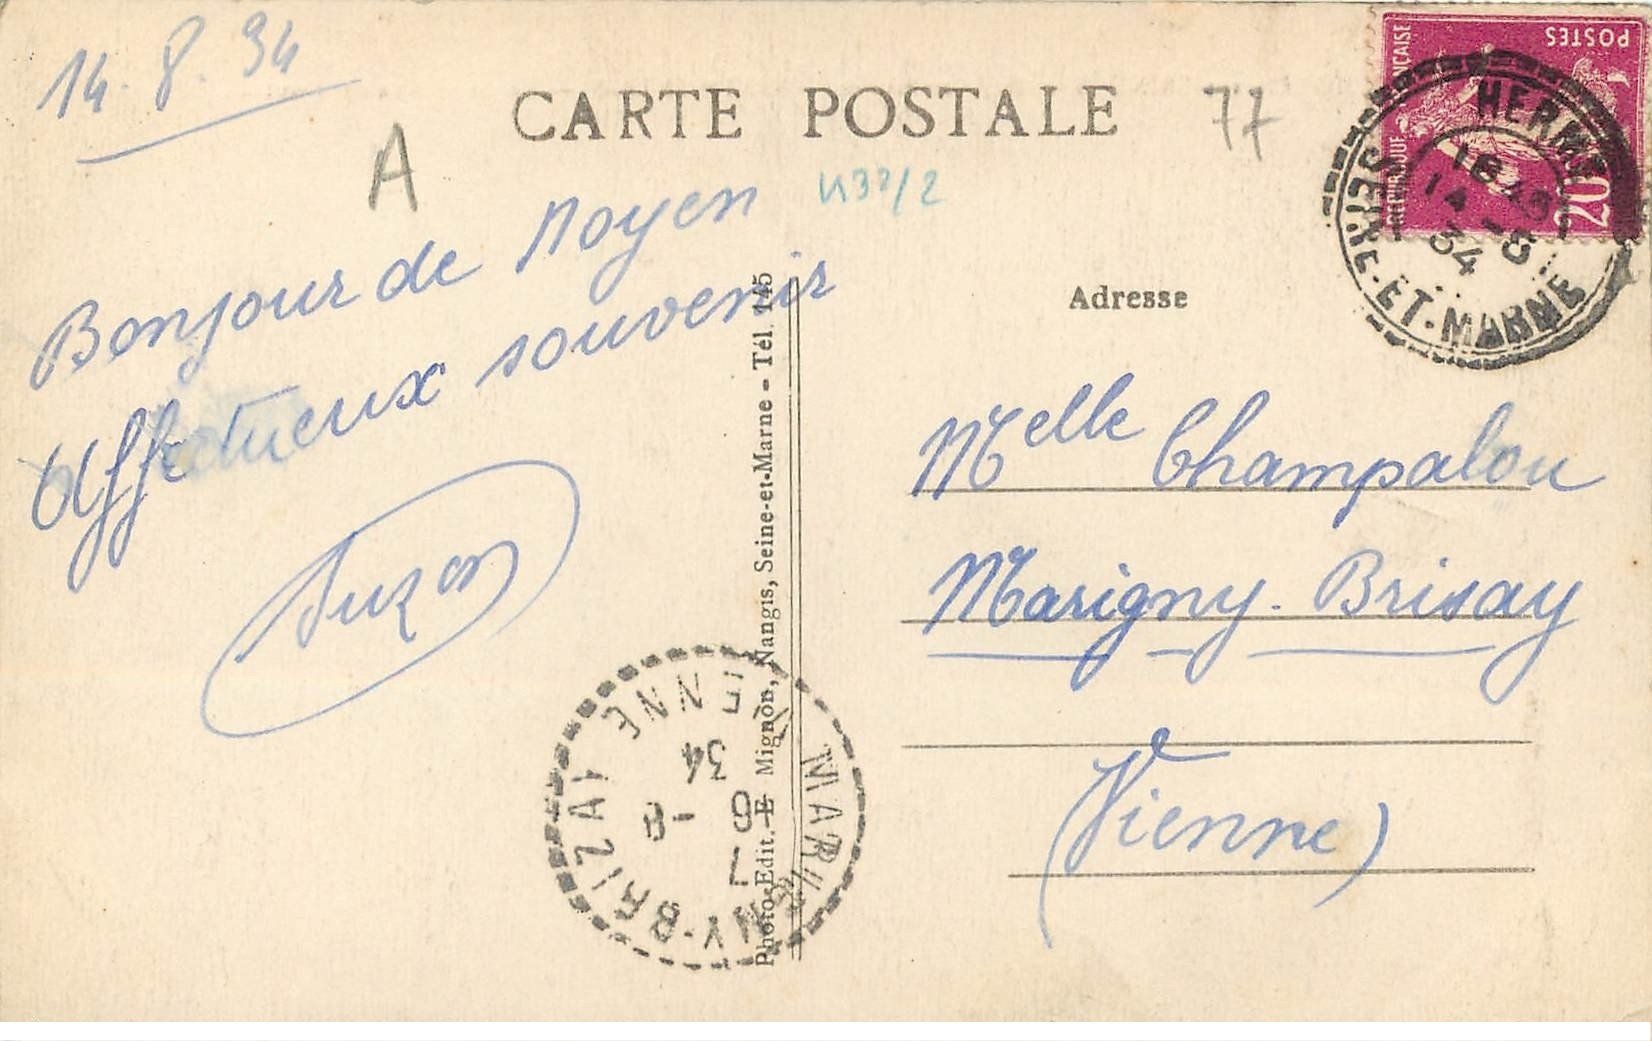 14.8.34
CARTE POSTALE
77
A
U37/2
Bonjour de Noyen
Affectueux souvenir
Suzon
Photo-Edit. E Mignon, Nangis, Seine-et-Marne - Tél. 145
Adresse
Melle Champalou
Marigny-Brisay
(Vienne)
POSTES
REPUBLIQUE FRANÇAISE
20
HERMÉ
14 -8
34
SEINE-ET-MARNE
MARIGNY-BRIZAY
VIENNE
34